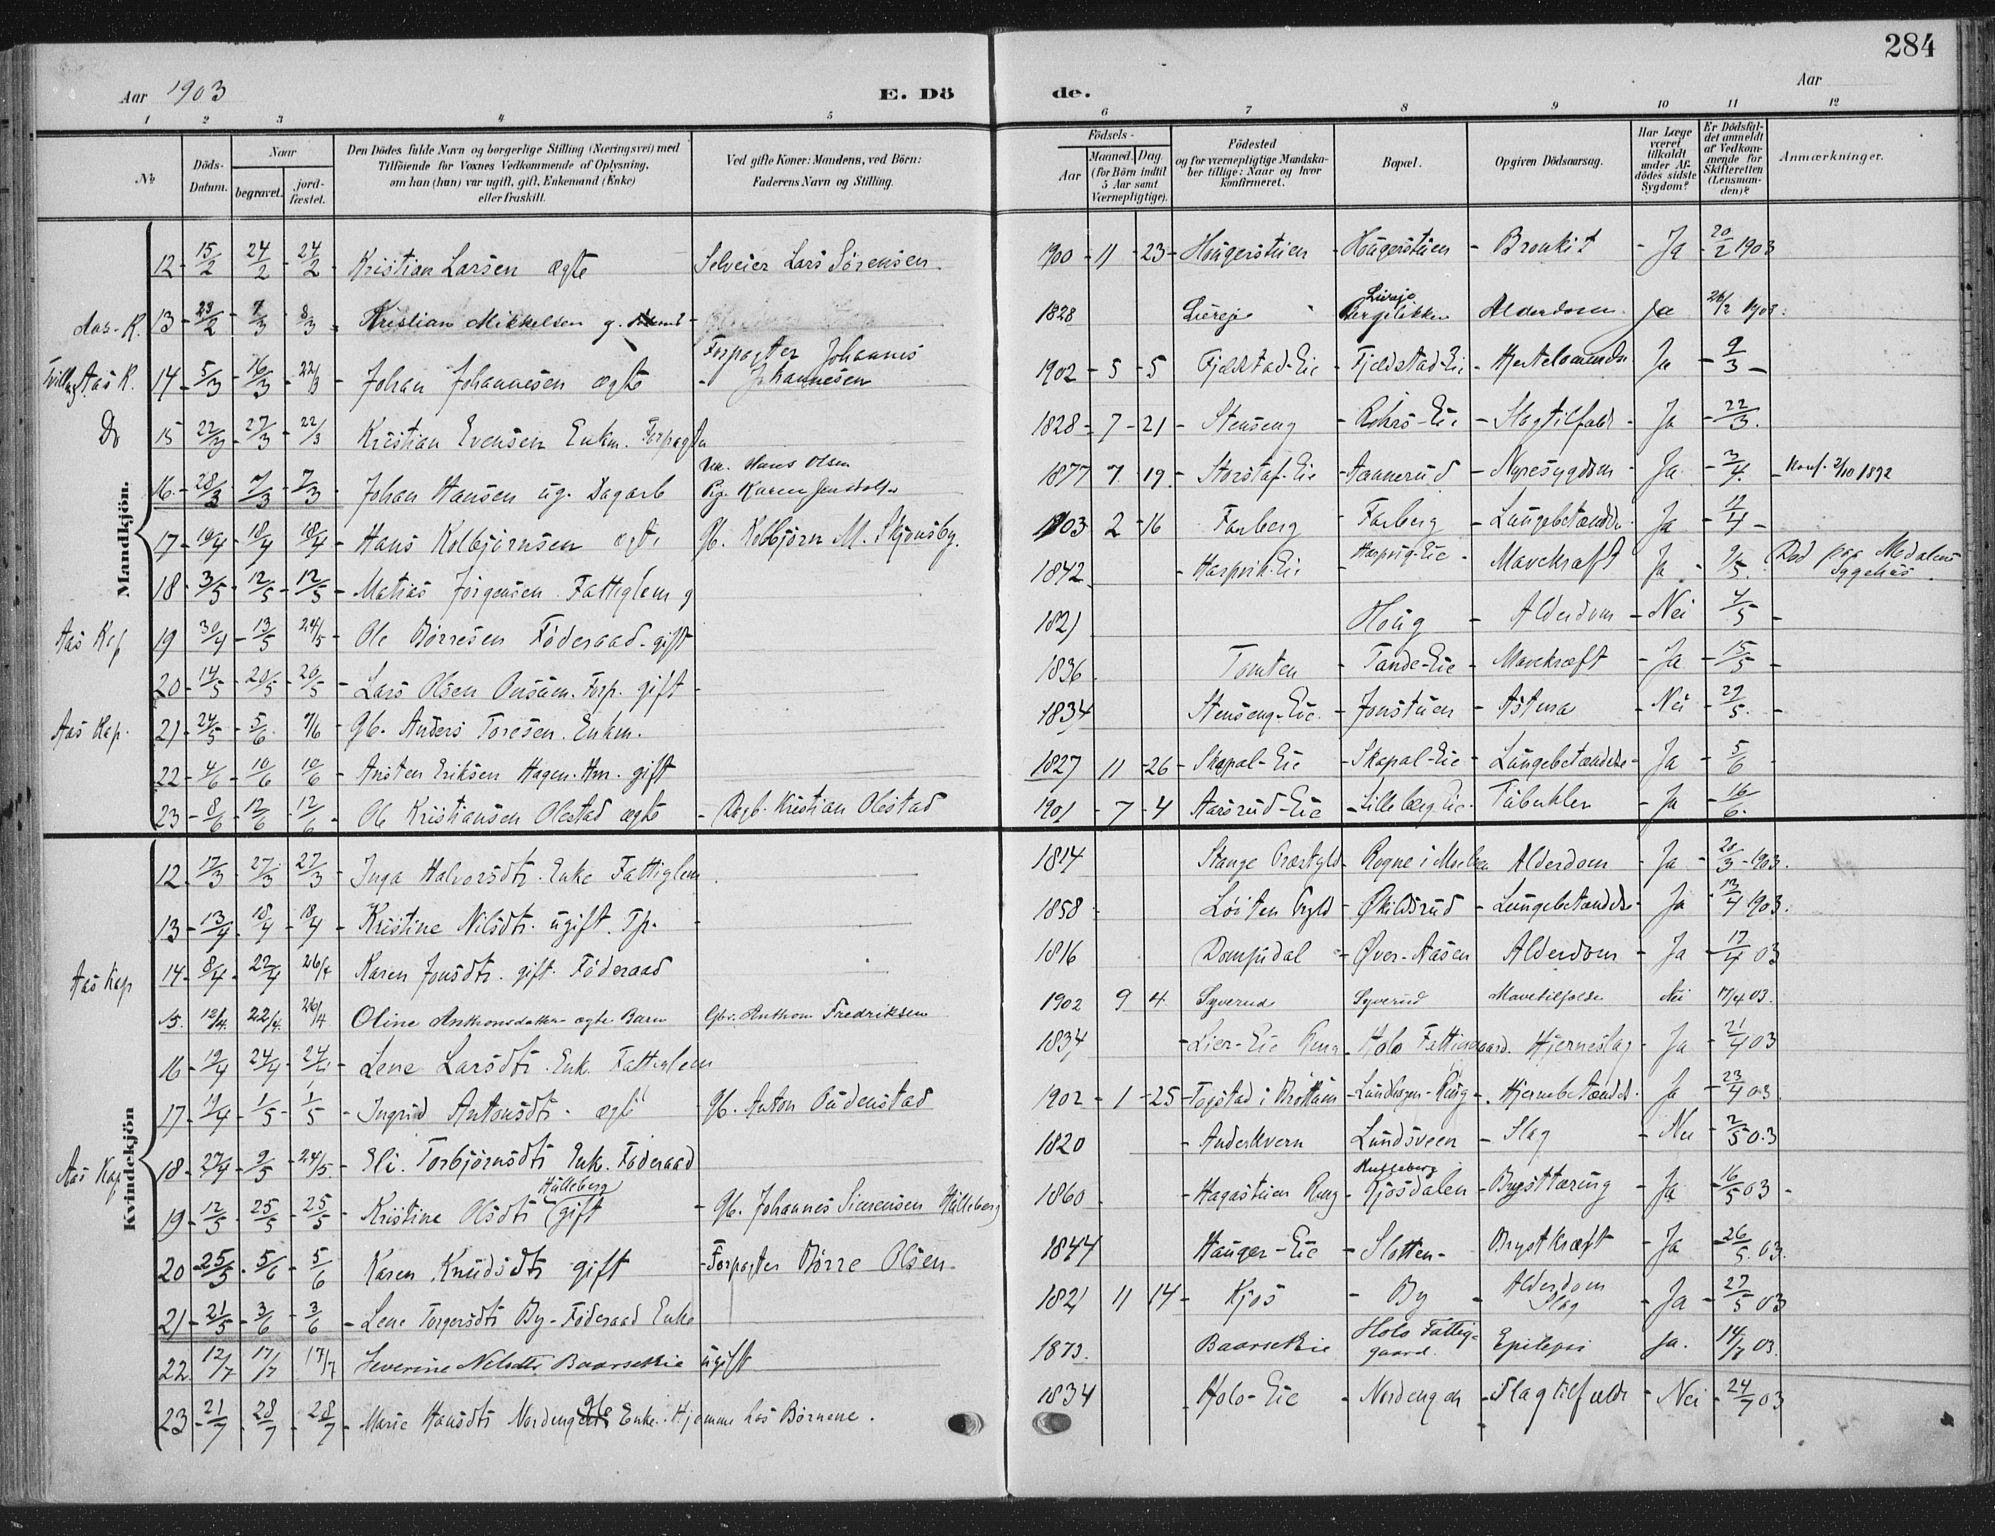 284
Aar 1903
E. Dö
de.
Aar
1 2 3 4 5 6 7 8 9 10 11 12
No
Döds-Datum.
Naar
begravet.
jord-fæstet.
Den Dödes fulde Navn og borgerlige Stilling (Næringsvei) med
Tilföiende for Voxnes Vedkommende af Oplysning,
om han (hun) var ugift, gift, Enkemand (Enke)
eller fraskilt.
Ved gifte Koner: Mandens, ved Börn:
Faderens Navn og Stilling.
Födsels-
Aar
Maaned. Dag.
(for Börn indtil
5 Aar samt
Værnepligtige).
Födested
og for værnepligtige Mandska-
ber tillige: Naar og hvor
konfirmeret.
Bopæl.
Opgiven Dödsaarsag.
Har Læge
været
tilkaldt
under Af-
dödes sidste
Sygdom?
Er Dödsfal-
det anmeldt
af Vedkom-
mende for
Skifteretten
(Lensman-
den)?
Anmærkninger.
Mandkjön.
12 - 15/2 - 24/2 - 24/2 - Kristian Larsen ægte Selveier Lars Sørensen. 1900 - 11 - 23 - Hougerstuen - Hougerstuen - Bronkit - Ja - 20/2 1903
Aas-K. 13 - 23/2 - 7/3 - 8/3 - Kristian Mikkelsen g. 1828 Lureje Lureje Alderdom Ja 26/2 1903.
Aas K. 14 - 5/3 - 16/3 - 22/3 - Johan Johannesen ægte - Forpagter Johannes Johannesen 1902 - 5 - 5 - Fjeldstad-Eie - Fjeldstad-Eie - Ja - 9/3 -
Do 15 - 22/3 - 27/3 - 22/3 - Kristian Evensen Enkm. Forpagter 1828 - 7 - 21 - Stenseng - - Slagtilfælde - Ja - 22/3.
16 - 28/3 - 7/3 - 7/3 - Johan Hansen ug. Dagarb Hans Olsen Pige Karen 1877 7. 19. - Storstaf-Eie - Aannerud - Nyresygdom - Ja. - 3/4. - Konf. 2/10 1892
17 - 10/4 - 18/4 - 18/4 - Hans Kolbjørnsen ægte Gb. Kolbjørn M. Skjønsby. 1903 - 2 - 16 Farberg - Farberg - Lungebetændelse Ja - 12/4 -
18 - 3/5 - 12/5 - 12/5 - Matias Jørgensen Fattiglem g 1842 - - Mavekræft Ja - 9/5. Død paa Sygehus.
Aas Kap 19 30/4 - 13/5 - 24/5 - Ole Børresen Føderaad - gift 1821 Houg - Alderdom - Nei 4/5 -
20 - 14/5 - 20/5 - 20/5 - Lars Olsen Forp. gift - 1836 Tomten - Tande-Eie - Mavekræft - Ja - 15/5 -
Aas Kap. 21 - 24/5 - 5/6 7/6 - Gb. Anders Toresen. Enkm. 1834 Stenseng-Eie. - Jonstuen - Astma - Nei - 29/5. -
22 - 4/6 - 10/6 10/6 - Ansten Eriksen Hagen. Hm. gift 1827 11 - 26 - Skapal-Eie - Skapal-Eie - Lungebetændelse - Ja - 5/6
23 - 8/6 - 12/6 - 12/6 - Ole Kristiansen Olestad ægte - Dagb. Kristian Olestad 1901 - 7 - 4 Aarsrud-Eie - Lilleberg Eie. - Tuberkler - Ja - 16/6.
Kvindekjön
12 - 17/3 - 27/3 - 27/3 - Inga Halvorsdtr. Enke Fattiglem 1814 Stange Præstgld - Rogne i - Alderdom - Ja - 20/3 - 1903.
13 - 13/4 - 18/4 - 18/4 - Kristine Nilsdtr. ugift. Tp. - 1858 - Løiten Prgld - Økildsrud - Lungebetændelse - Ja - 13/4 1903.
Aas Kap 14 - 8/4 - 22/4 26/4 - Karen Jonsdtr. gift. Føderaad 1816 Dompidal - Øver-Aasen Alderdom - Ja - 17/4 03
15. 12/4. 22/4. 26/4 Oline Anthonsdatter ægte Barn Gbr. Anthon Fredriksen 1902 9 4. Syverud Syverud Nei 17/4 03.
16 - 19/4 - 24/4 - 24/4 - Lene Larsdtr. Enk. Fattiglem 1834 - Lier-Eie Ring - Holo Fattiggaard. Hjerneslag - Ja - 21/4 03
17 - 19/4 - 1/5 - 1/5 - Ingrid Antonsdtr. ægte Gb. Anton Pudenstad 1902 - 1 - 25 - - Ring - Hjernebetændelse Ja - 23/4 03.
Aas Kap 18 - 27/4 - 9/5 - 24/5. - Eli Torbjørnsdtr Enk. Føderaad 1820 - Anderkvern Lundsveen - Slag - Nei - 2/5 03
19 - 12/5 - 25/5 - 25/5 - Kristine Olsdtr Hulleberg (gift - Gb. Johannes Simensen Hulleberg 1860 - Hagastuen Ring - Hulleberg Kjosdalen - Brysttæring - Ja - 16/5 03 -
20 - 25/5 - 5/6 - 5/6 Karen Knudsdtr gift - Forpagter Børre Olsen 1844 Hauger-Eie - Slotten - Brystkræft - Ja - 26/5 03.
21 - 21/5 - 3/6 - 3/6 - Lene Torgersdtr By - Føderaad Enke 1821 11 14 - Kjos - By - Alderdom Slag - Ja - 27/5 03
22 12/7 17/7 17/7 Severine Nilsdtr Baarsetkie ugift 1873. Baarsetkie Holo Fattiggaard. Epilepsi Ja. 14/7 03.
23 - 21/7 - 28/7 - 28/7 - Marie Hansdtr Nordengen Enke. Hjemme hos Børnene. 1834 - Holo-Eie - Nordengen - Slagtilfælde - Nei - 24/7 03